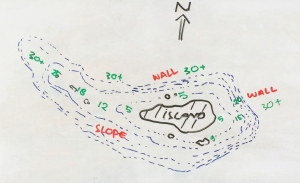 N
30+
25
18
12
5
30+
WALL 30+
5
ISLAND
WALL
30+
30
15
5
5
SLOPE